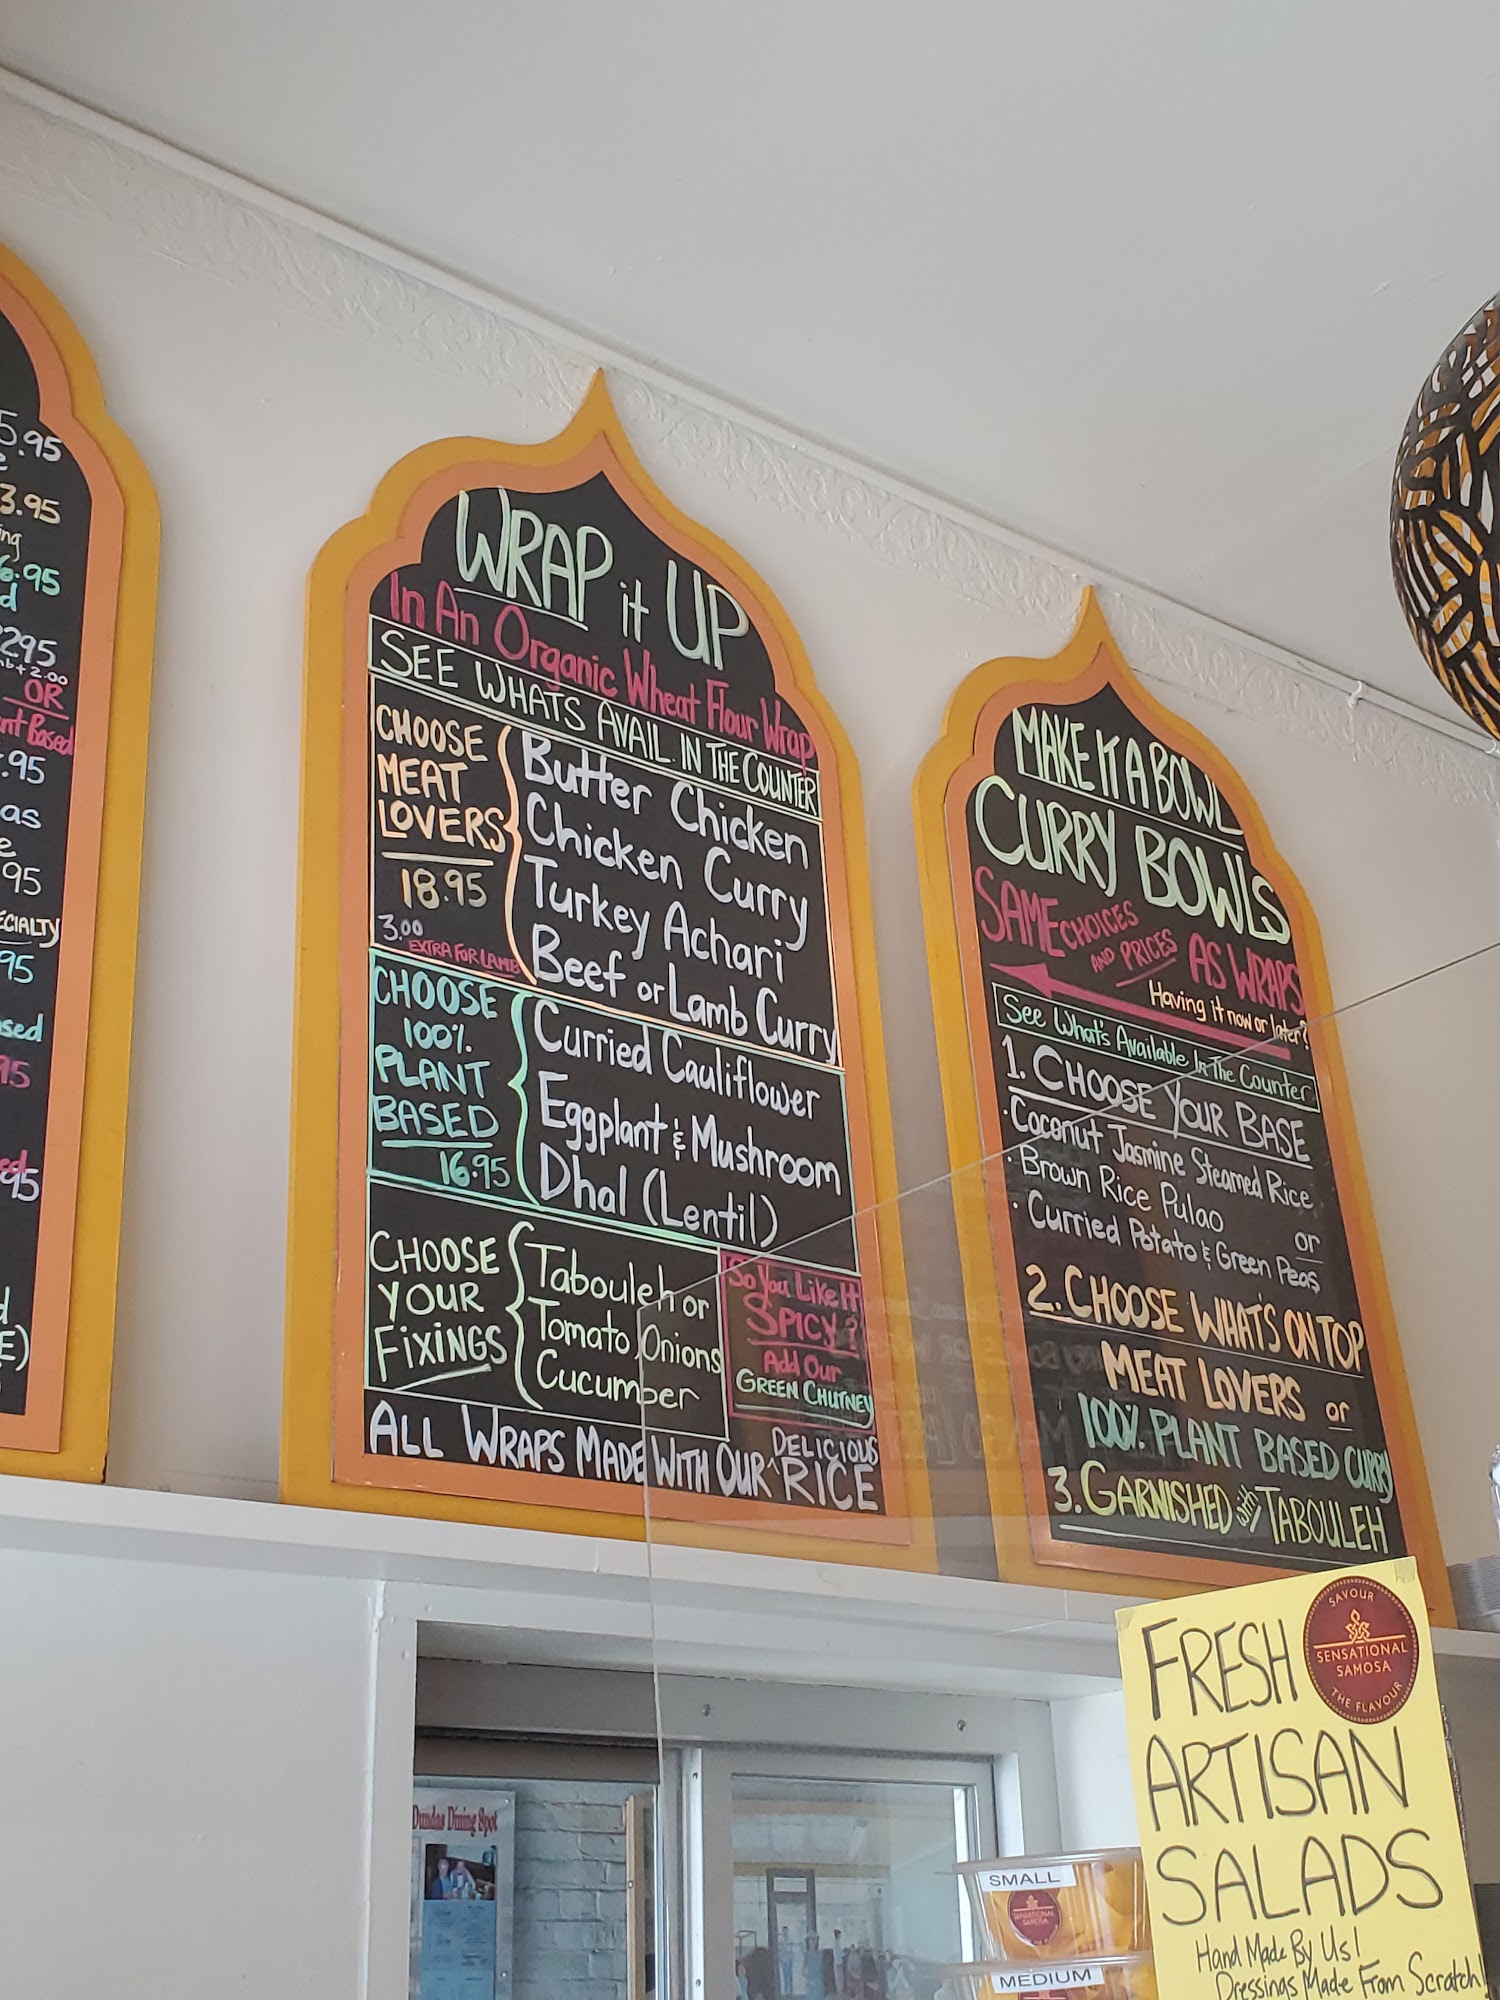 5.95
3.95
6.95
2295
+ 2.00
OR
Based
.95
as
95
95
95
E)
WRAP it UP
In An Organic Wheat Flour Wrap
SEE WHATS AVAIL. IN THE COUNTER
CHOOSE
MEAT
LOVERS
18.95
3.00
EXTRA FOR LAMB
Butter Chicken
Chicken Curry
Turkey Achari
Beef or Lamb Curry
CHOOSE
100%
PLANT
BASED
16.95
Curried Cauliflower
Eggplant & Mushroom
Dhal (Lentil)
CHOOSE
YOUR
FIXINGS
Tabouleh or
Tomato, Onions
Cucumber
So You Like It
SPICY?
Add Our
GREEN CHUTNEY
ALL WRAPS MADE WITH OUR ^ DELICIOUS RICE
MAKE IT A BOWL
CURRY BOWLS
SAME CHOICES
AND PRICES AS WRAPS
Having it now or later?
See What's Available In The Counter
1. CHOOSE YOUR BASE
· Coconut Jasmine Steamed Rice
· Brown Rice Pulao
or
· Curried Potato & Green Peas
2. CHOOSE WHAT'S ON TOP
MEAT LOVERS or
100% PLANT BASED CURRY
3. GARNISHED with TABOULEH
FRESH
ARTISAN
SALADS
Hand Made By Us!
Dressings Made From Scratch!
SAVOUR
SENSATIONAL
SAMOSA
THE FLAVOUR
Dundas Dining Spot
SMALL
SENSATIONAL
SAMOSA
MEDIUM